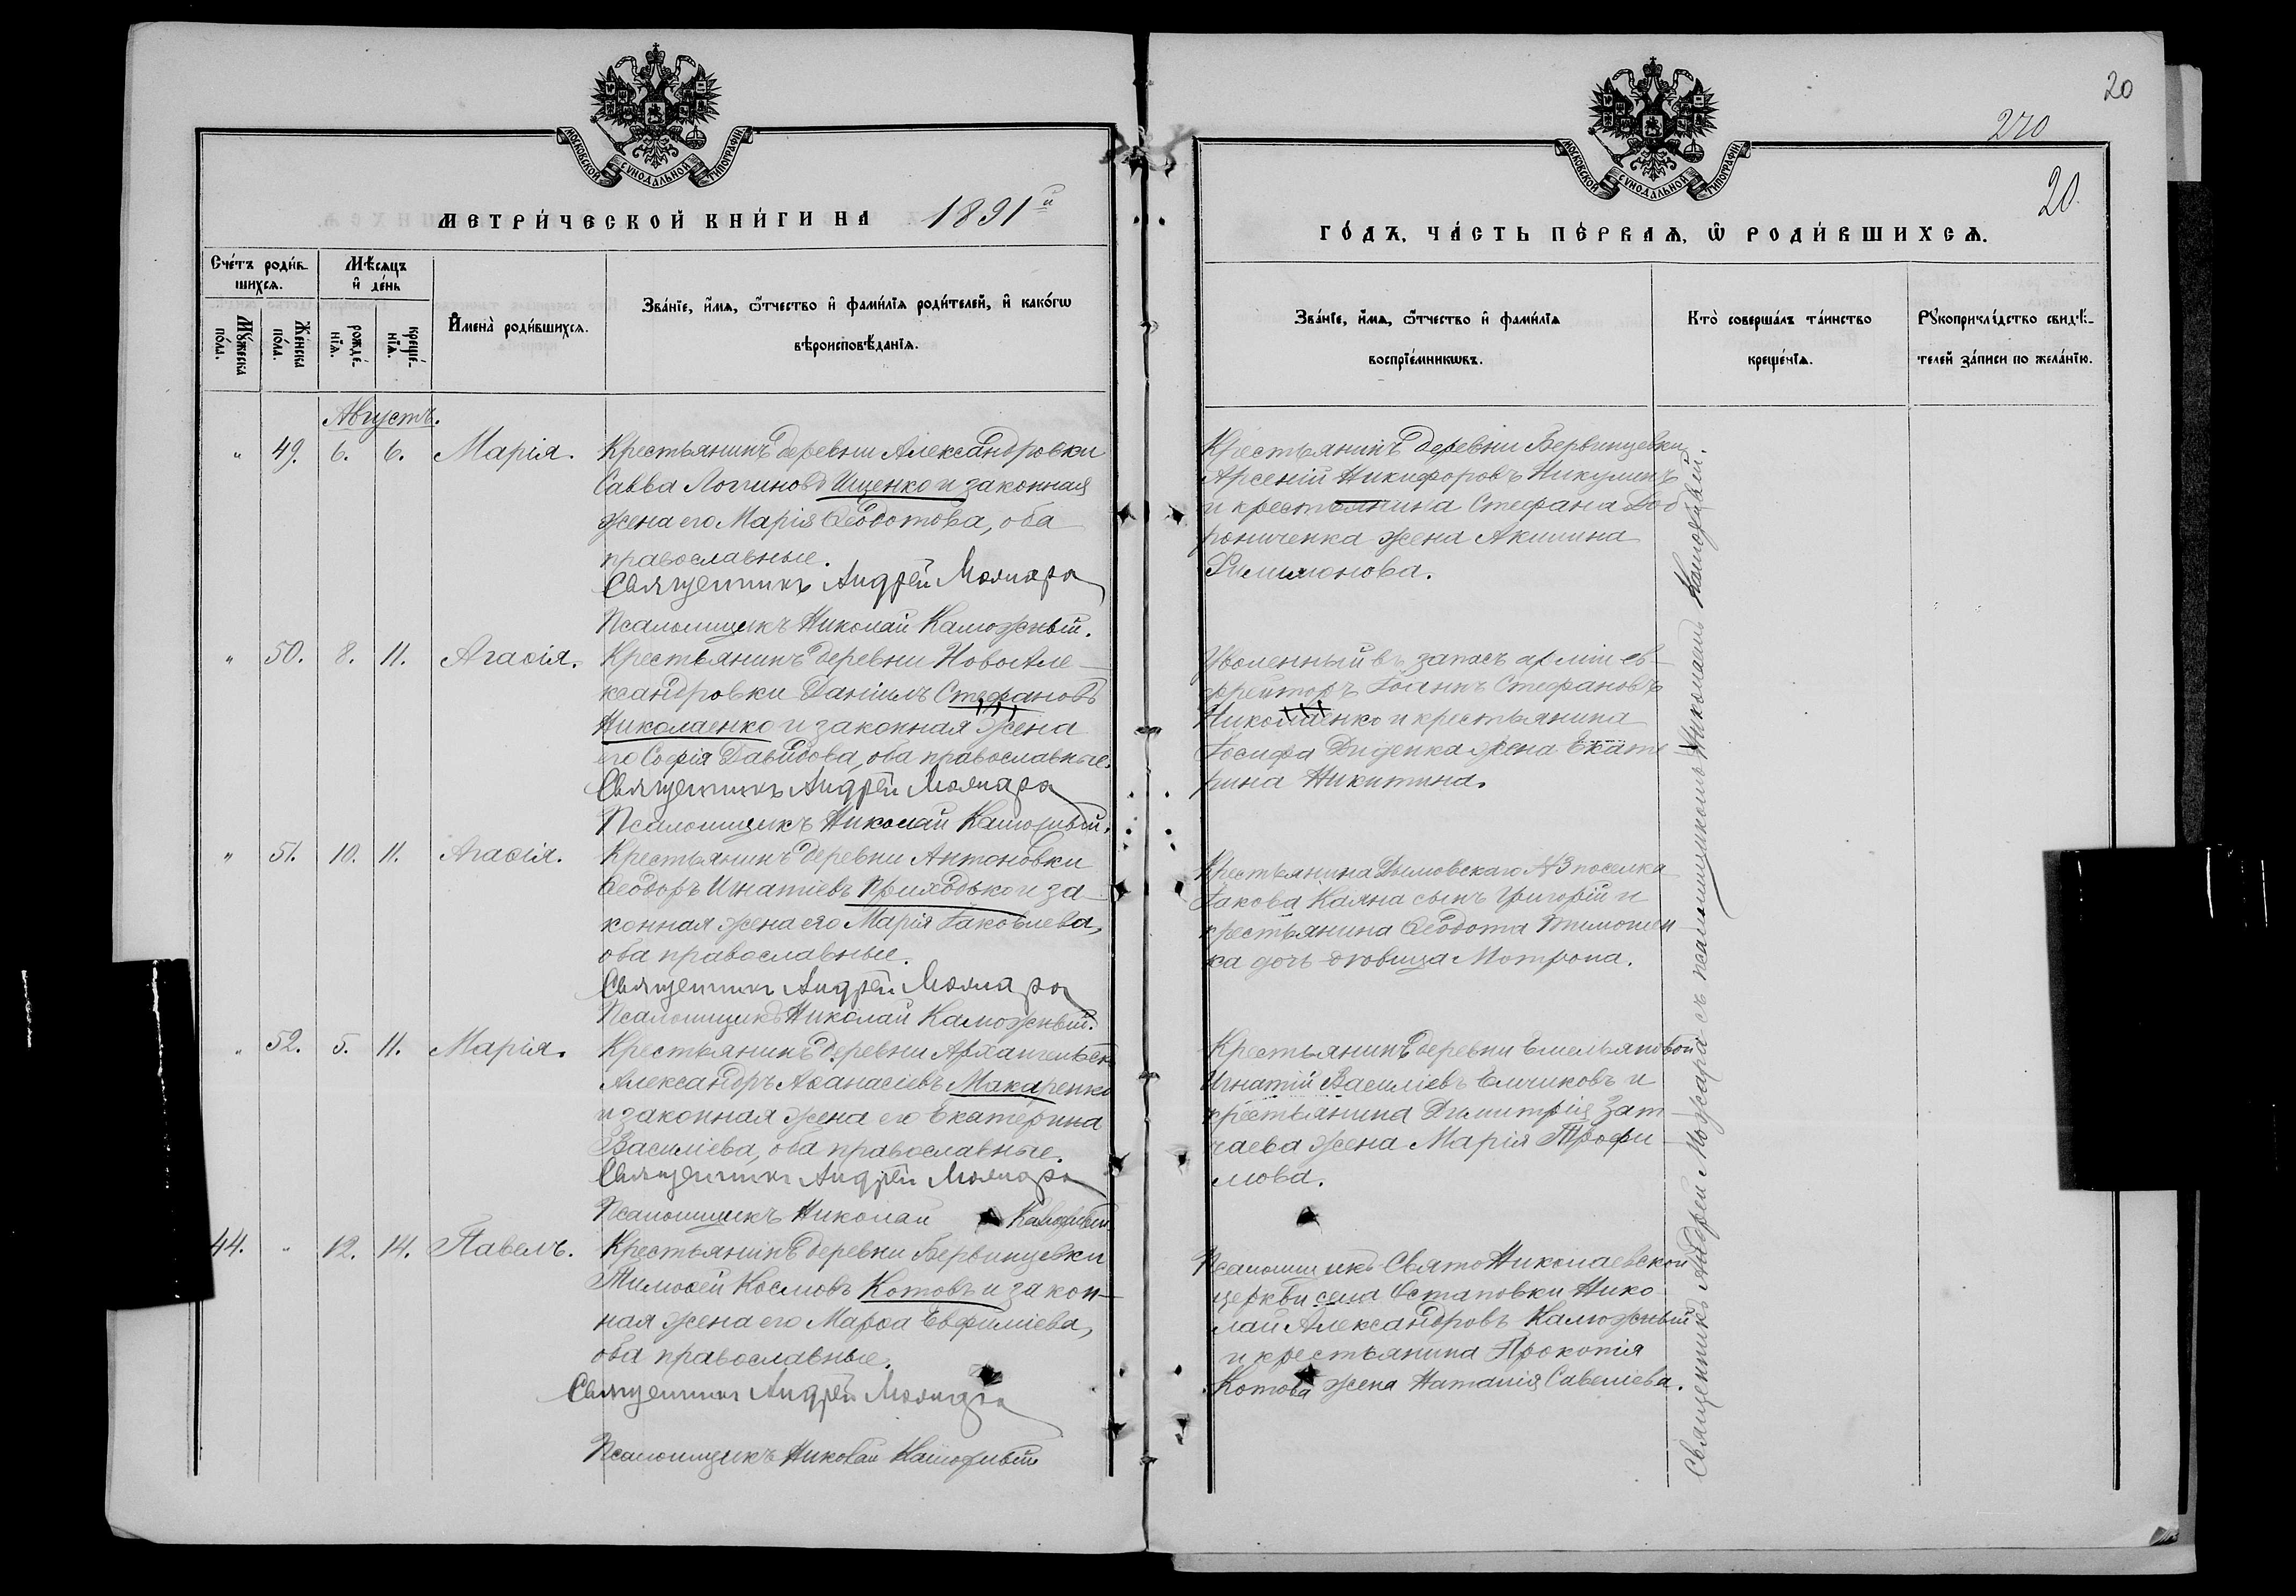 МОСКОВСКОЙ СѴНОДАЛЬНОЙ ТИПОГРАФІИ
МЕТРИ́ЧЕСКОЙ КНИ́ГИ НА 1891й
Сче́тъ роди́в-
шихся.
Мѣ́сяцъ
и҆ де́нь
Мꙋ́жеска
по́ла.
Же́нска
по́ла.
рожде́-
нїя.
креще́-
нїя.
И҆мена̀ роди́вшихся.
Зва́нїе, и҆́мя, ѻ҆́тчество и҆ фами́лїя роди́телей, и҆ како́гѡ
вѣроисповѣ́данїя.
Августъ.
" 49. 6. 6. Марія.
Крестьянинъ деревни Александровки
Савва Логиновъ Ищенко и законная
жена его Марія Ѳеодотова, оба
православные.
Священникъ Андрей Можара
Псаломщикъ Николай Калюжный.
" 50. 8. 11. Агаѳія.
Крестьянинъ деревни НовоАле-
ксандровки Даніилъ Стефановъ
Николаенко и законная жена
его Софія Давидова, оба православные.
Священникъ Андрей Можара
Псаломщикъ Николай Калюжный.
" 51. 10. 11. Агаѳія.
Крестьянинъ деревни Антоновки
Ѳеодоръ Игнатіевъ Приходько и за-
конная жена его Марія Іаковлева,
оба православные.
Священникъ Андрей Можара
Псаломщикъ Николай Калюжный.
" 52. 5. 11. Марія.
Крестьянинъ деревни Архангельск
Александръ Аѳанасіевъ Макаренко
и законная жена его Екатерина
Василіева, оба православные.
Священникъ Андрей Можара
Псаломщикъ Николай Калюжный
44. " 12. 14. Павелъ.
Крестьянинъ деревни Вервинцевки
Тимоѳей Космовъ Котовъ и закон-
ная жена его Марѳа Евфиміева,
оба православные.
Священникъ Андрей Можара
Псаломщикъ Николай Калюжный
20
270
20.
МОСКОВСКОЙ СѴНОДАЛЬНОЙ ТИПОГРАФІИ
ГО́ДЪ, ЧА́СТЬ ПЕ́РВАЯ, Ѡ РОДИ́ВШИХСЯ.
Зва́нїе, и҆́мя, ѻ҆́тчество и҆ фами́лїя
воспрїе́мникѡвъ.
Кто̀ соверша́лъ та́инство
креще́нїя.
Рꙋкоприкла́дство свидѣ́-
телей за́писи по жела́нїю.
Крестьянинъ деревни Вервинцевки
Арсеній Никифоровъ Никулинъ
и крестьянина Стефана Доб
рониченка жена Акилина
Филимонова.
Уволенный въ запасъ арміи еф-
рейторъ Іоаннъ Стефановъ
Николаенко и крестьянина
Іосифа Диденка жена Екате
рина Никитина.
Крестьянина Дымовскаго №3 поселка
Іакова Каяна сынъ Григорій и
крестьянина Ѳеодота Тимошен
ка дочь Мотрона.
Крестьянинъ деревни Емельяновой
Игнатій Василіевъ Еличковъ и
крестьянина Димитрія Зат
чаева жена Марія Трофи
мова.
Псаломщикъ СвятоНиколаевской
церкви села Остаповки Нико
лай Александровъ Калюжный
и крестьянина Прокопія
Котова жена Наталія Савеліева.
Священникъ Андрей Можара съ псаломщикомъ Николаемъ Калюжный.